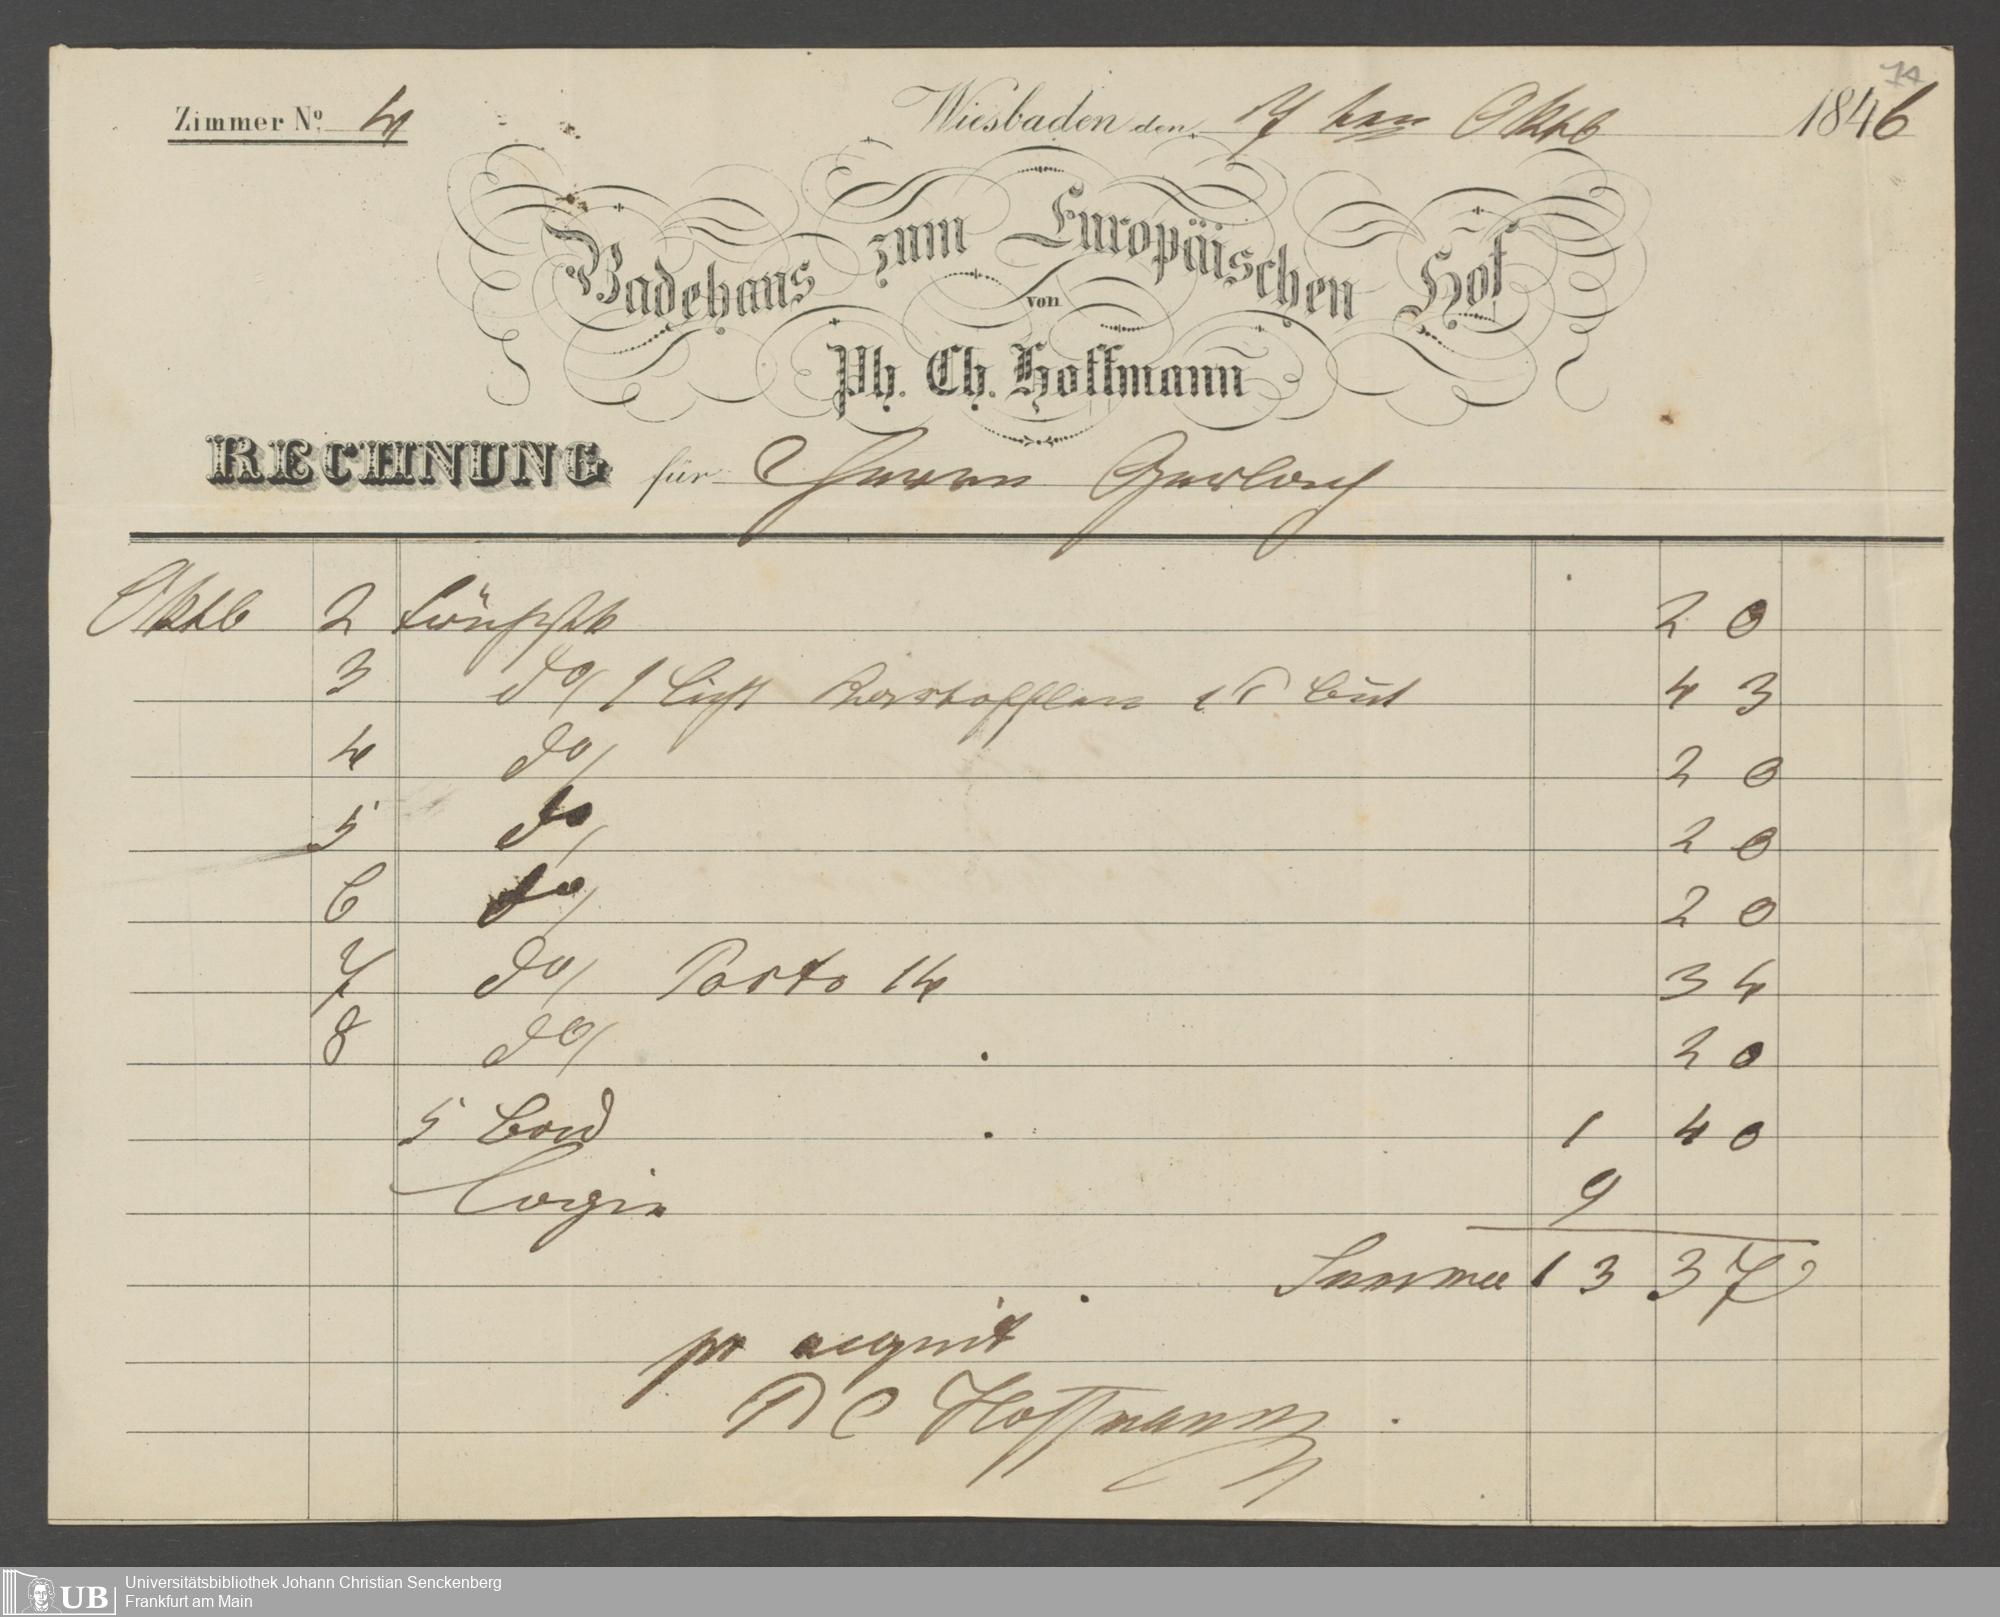 74
Zimmer Nº 4
Wiesbaden den 7 ten Oktb 1846
Badehaus zum Europäischen Hof
von
Ph. Ch. Hoffmann
RECHNUNG für Herrn Gerlach
Oktb 2 Frühstk 20
3 do/ 1 Licht Kartofflen But 43
4 do/ 20
5 do/ 20
6 do/ 20
7 do/ Porto 14 34
8 do/ 20
5 Bad 1 40
Logis 9
Summa 13 37
pr acquit
P C Hoffmann
UB
Universitätsbibliothek Johann Christian Senckenberg
Frankfurt am Main